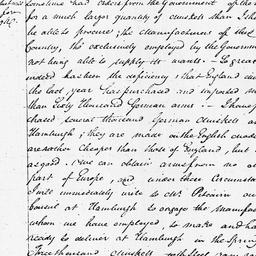 sometime had orders from the Government of the
for a much larger quantity of muskets than I sh
be able to procure; the Manufacturers of this
Country, tho exclusively employed by the Governm
not being able to supply its wants. — So great
indeed has been the deficiency, that England du
the last year has purchased and imported m
than Sixty thousand German arms —
chased several thousand German Muskets a
Hamburgh; they are made on the English mode
are rather cheaper than those of England, but
as good. We can obtain arms from no o
part of Europe, and under these Circumsta
I will immediately write to
at Hamburgh to engage the Manufac
whom we have employed, to make and ha
ready to deliver at Hamburgh in the Sprin
Three thousand Muskets with Steel